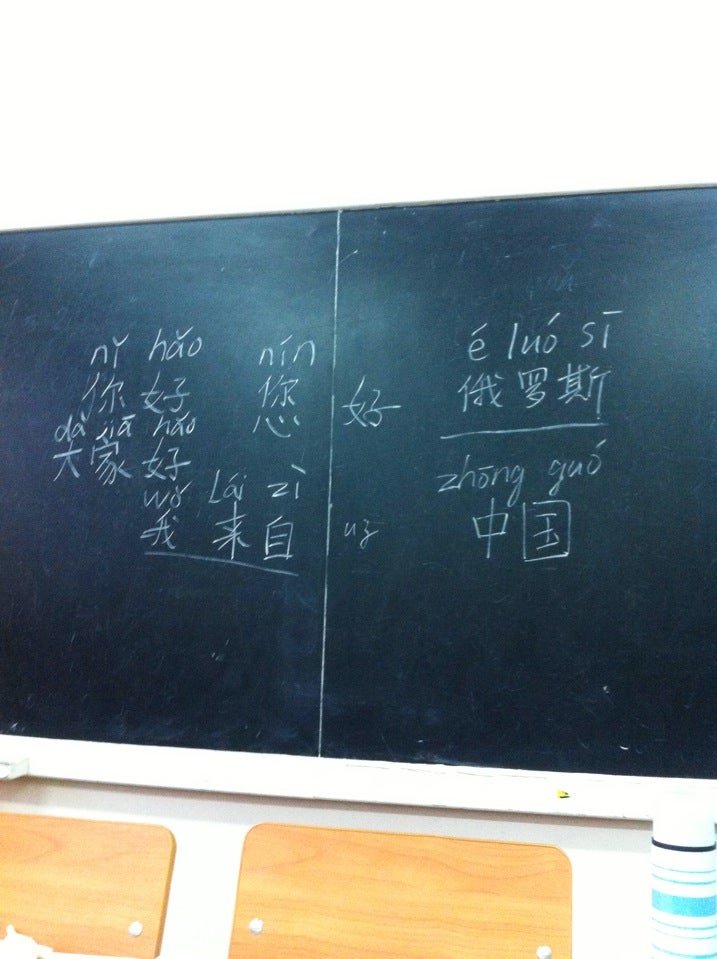 nǐ hǎo nín
你好 您好
dà jiā hǎo
大家好
wǒ lái zì
我来自
é luó sī
俄罗斯
zhōng guó
中国